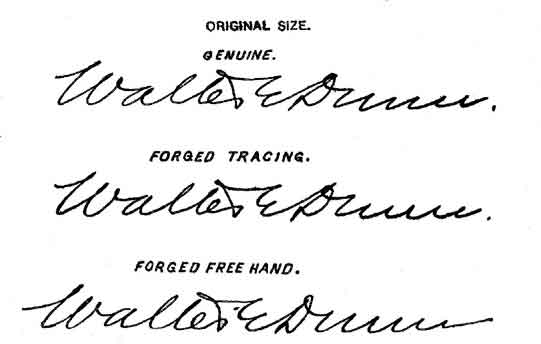 ORIGINAL SIZE.
GENUINE.
Walter E Dunn.
FORGED TRACING.
Walter E Dunn.
FORGED FREE HAND.
Walter E Dunn